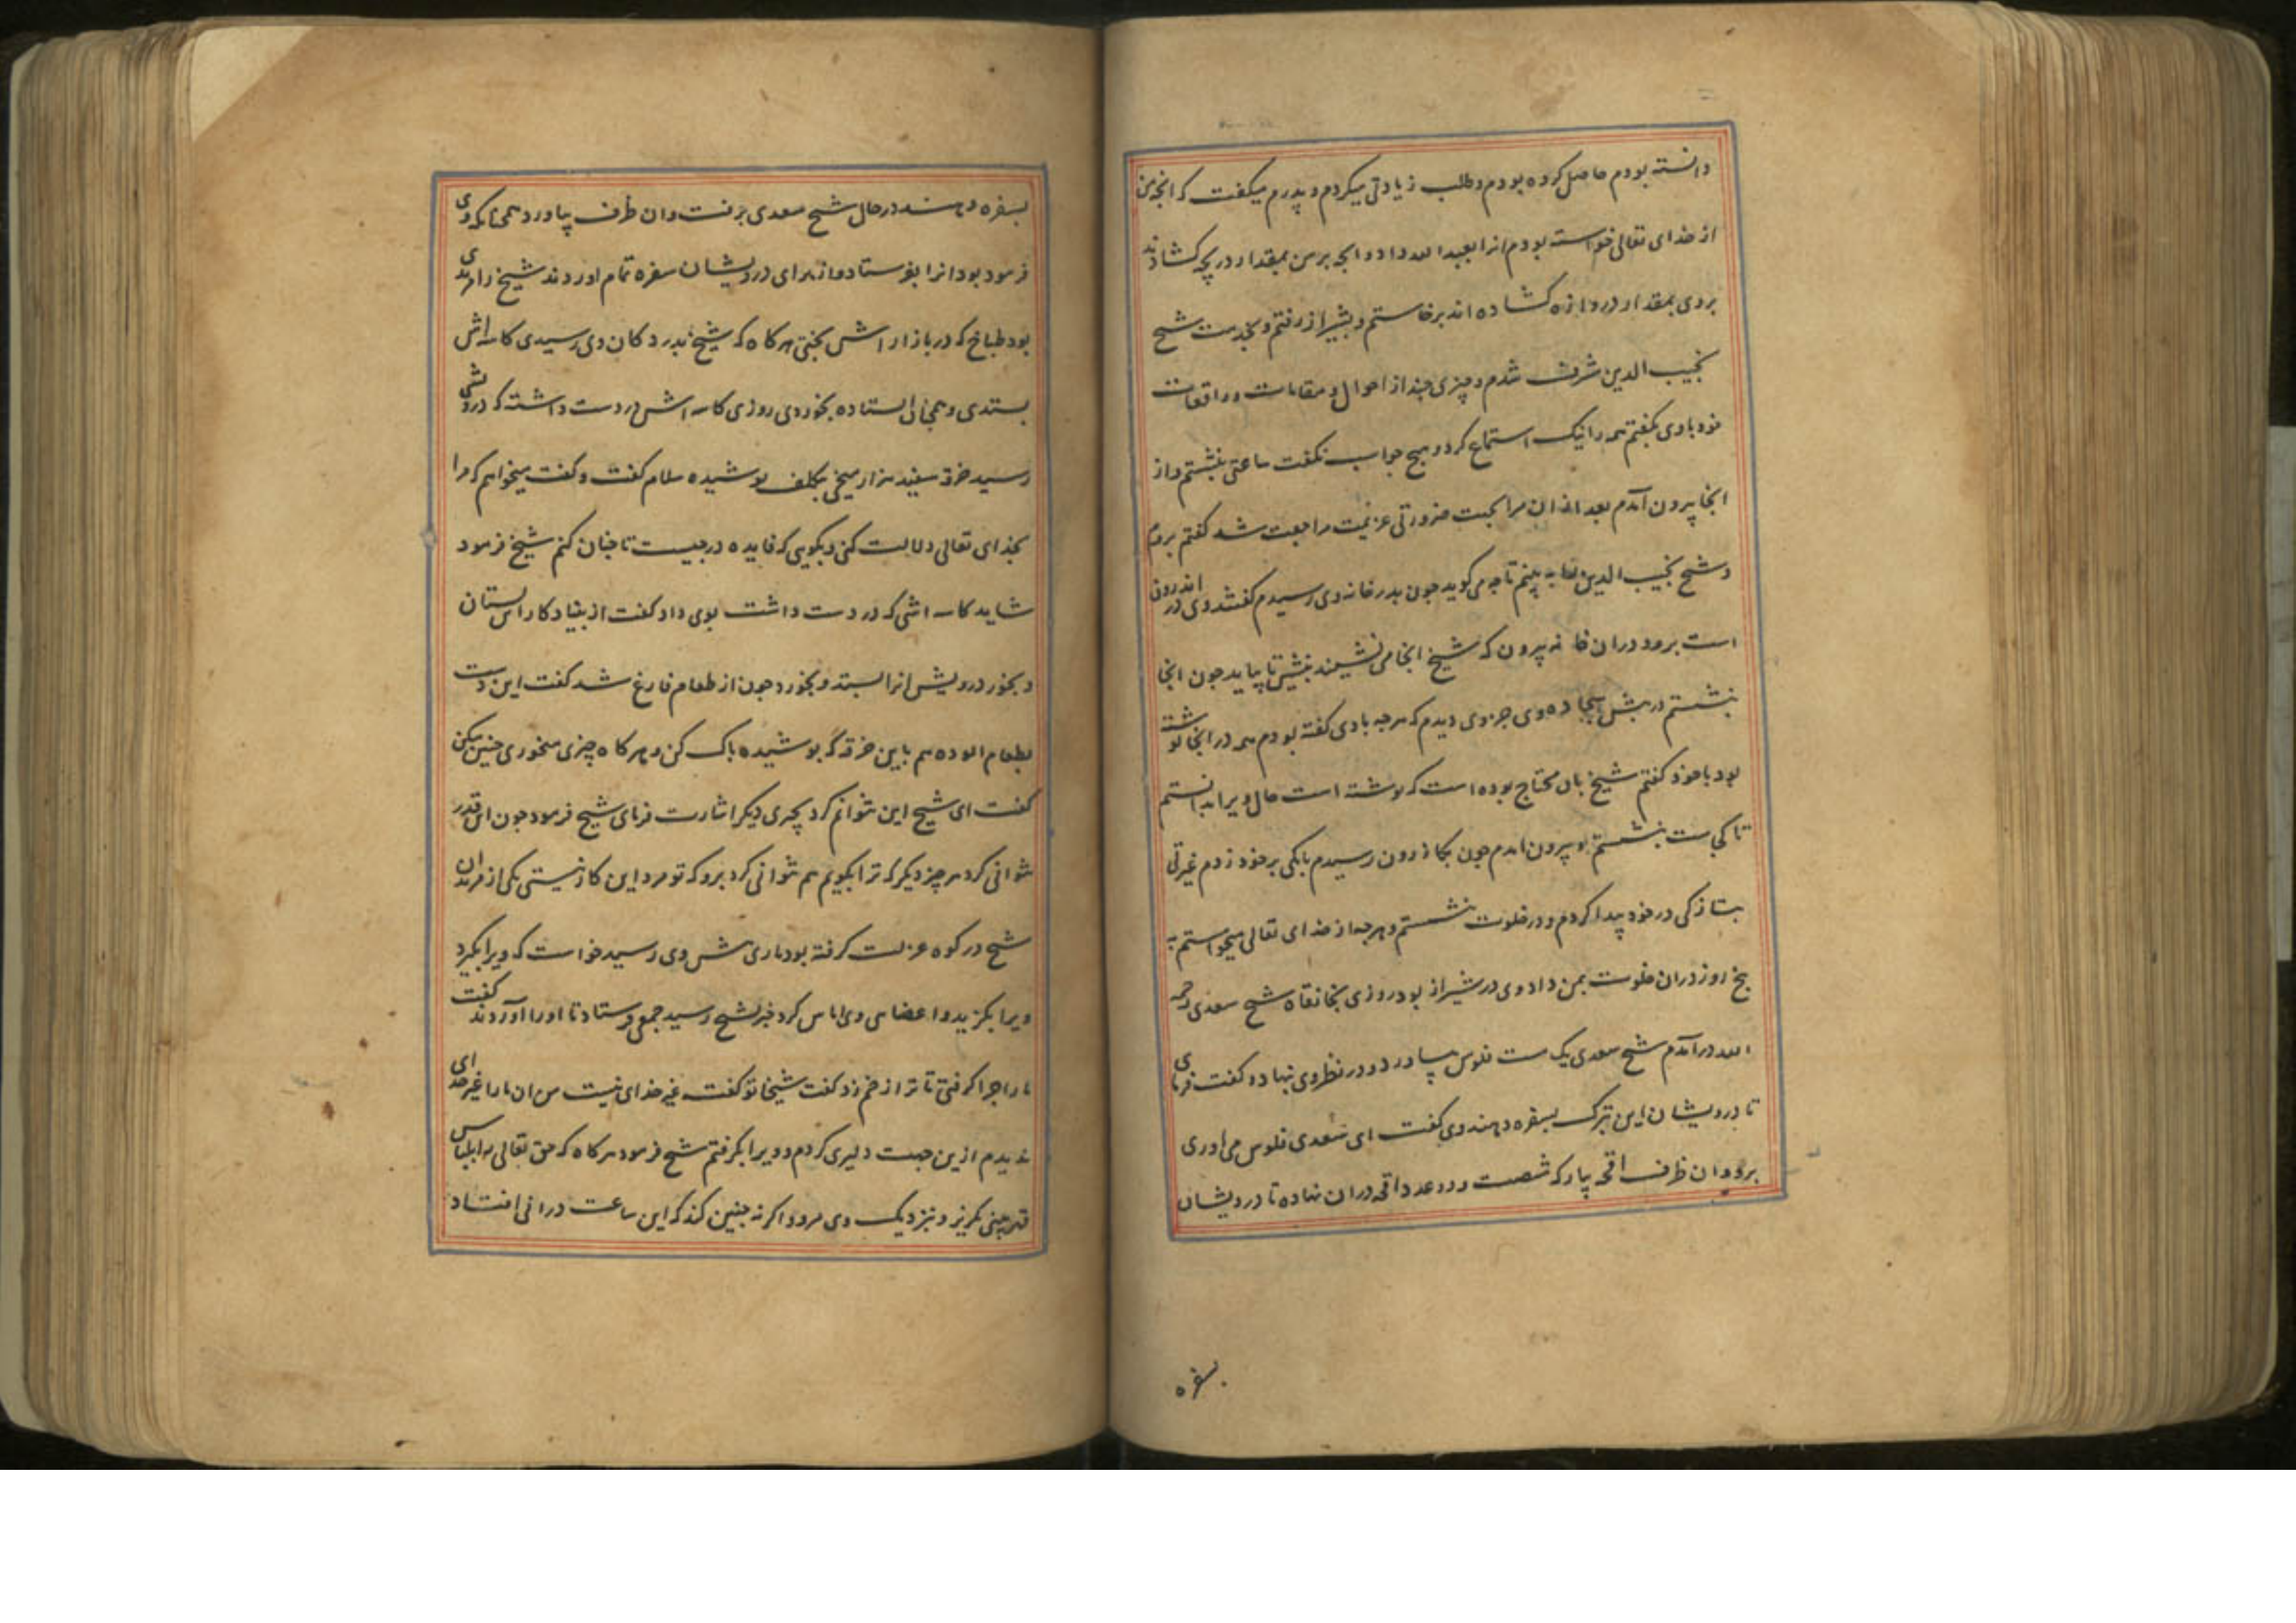 دانسته بودم حاصل کرده بودم و طلب زیادتی میکردم و پدرم میکفت که انچه من
از خدای تعالی خواسته بودم انرا بعبد الله داد و انچه بر من بمقدار دریچه کشادند
بر وی بمقدار دروازه کشاده اند برخاستم و بشیراز رفتم و بخدمت شیخ
نجیب الدین مشرف شدم و چیزی چند از احوال و مقامات و واقعات
خود با وی بکفتم همه را نیک استماع کرد و هیچ جواب نکفت ساعتی بنشستم و از
انجا بیرون آمدم بعد از ان مرا بجهت ضرورتی عزیمت مراجعت شد کفتم بروم
و شیخ نجیب الدین را به بینم تا چه می کوید چون بدر خانه وی رسیدم کفتند وی در اندرون
است برو در ان خانه بیرون که شیخ انجا می نشیند بنشین تا بیاید چون انجا
بنشستم در پیش سجاده وی جزوی دیدم که هرچه با وی کفته بودم همه در انجا نوشته
بود با خود کفتم شیخ بان محتاج بوده است که نوشته است حال ویرا بدانستم
تا کجاست بنشستم و بیرون امدم چون بکازرون رسیدم بانکی بر خود زدم غیرتی
بتازکی در خود پیدا کردم و در خلوت بنشستم و هرچه از خدای تعالی میخواستم به
پنج روز در ان خلوت بمن داد وی در شیراز بود روزی بخانقاه شیخ سعدی رحمه
الله درآمدم شیخ سعدی یک مشت فلوس بیاورد و در نظر وی بنهاد و کفت فرمای
تا درویشان این تبرک بسفره دهند وی کفت ای سعدی فلوس می اوری
برو و ان ظرف اقچه بیار که شصت و دو عدد اقچه در ان نهاده تا درویشان
بسفره
بسفره دهند در حال شیخ سعدی برفت و ان ظرف بیاورد همچنانکه وی
فرمود بود انرا بفرستاد و از برای درویشان سفره تمام اوردند شیخ را مریدی
بود طباخ که در بازار اش پختی هرکاه که شیخ بدر دکان وی رسیدی کاسه اش
بستدی و همچنان ایستاده بخوردی روزی کاسه اش در دست داشته که درویشی
رسید خرقه سفید هزار میخی بتکلف پوشیده سلام کفت و کفت میخواهم که مرا
بخدای تعالی دلالت کنی و بکویی که فایده در چیست تا چنان کنم شیخ فرمود
شاید کاسه اشی که در دست داشت بوی داد کفت از بنیاد کار این بستان
و بخور درویش انرا بستد و بخورد چون از طعام فارغ شد کفت این دست
بطعام الوده هم باین خرقه که پوشیده پاک کن و هرکاه چیزی میخوری چنین میکن
کفت ای شیخ این نتوانم کرد بچیزی دیکر اشارت فرمای شیخ فرمود چون این قدر
نتوانی کرد هر چیز دیکر که ترا بکویم هم نتوانی کرد برو که تو مرد این کار نیستی یکی از مریدان
شیخ در کوه عزلت کرفته بود ماری پیش وی رسید خواست که ویرا بکیرد
ویرا بکزید و اعضای وی اماس کرد خبر بشیخ رسید جمعی فرستاد تا اورا آوردند کفت
مار را چرا کرفتی تا ترا زخم زد کفت شیخا تو کفته غیر خدای نیست من ان مار را غیر خدای
ندیدم ازین جهت دلیری کردم و ویرا بکرفتم شیخ فرمود هرکاه که حق تعالی را بلباس
قهر بینی بکریز و نزدیک وی مرو و اکر نه چنین کند که این ساعت در انی افتاد